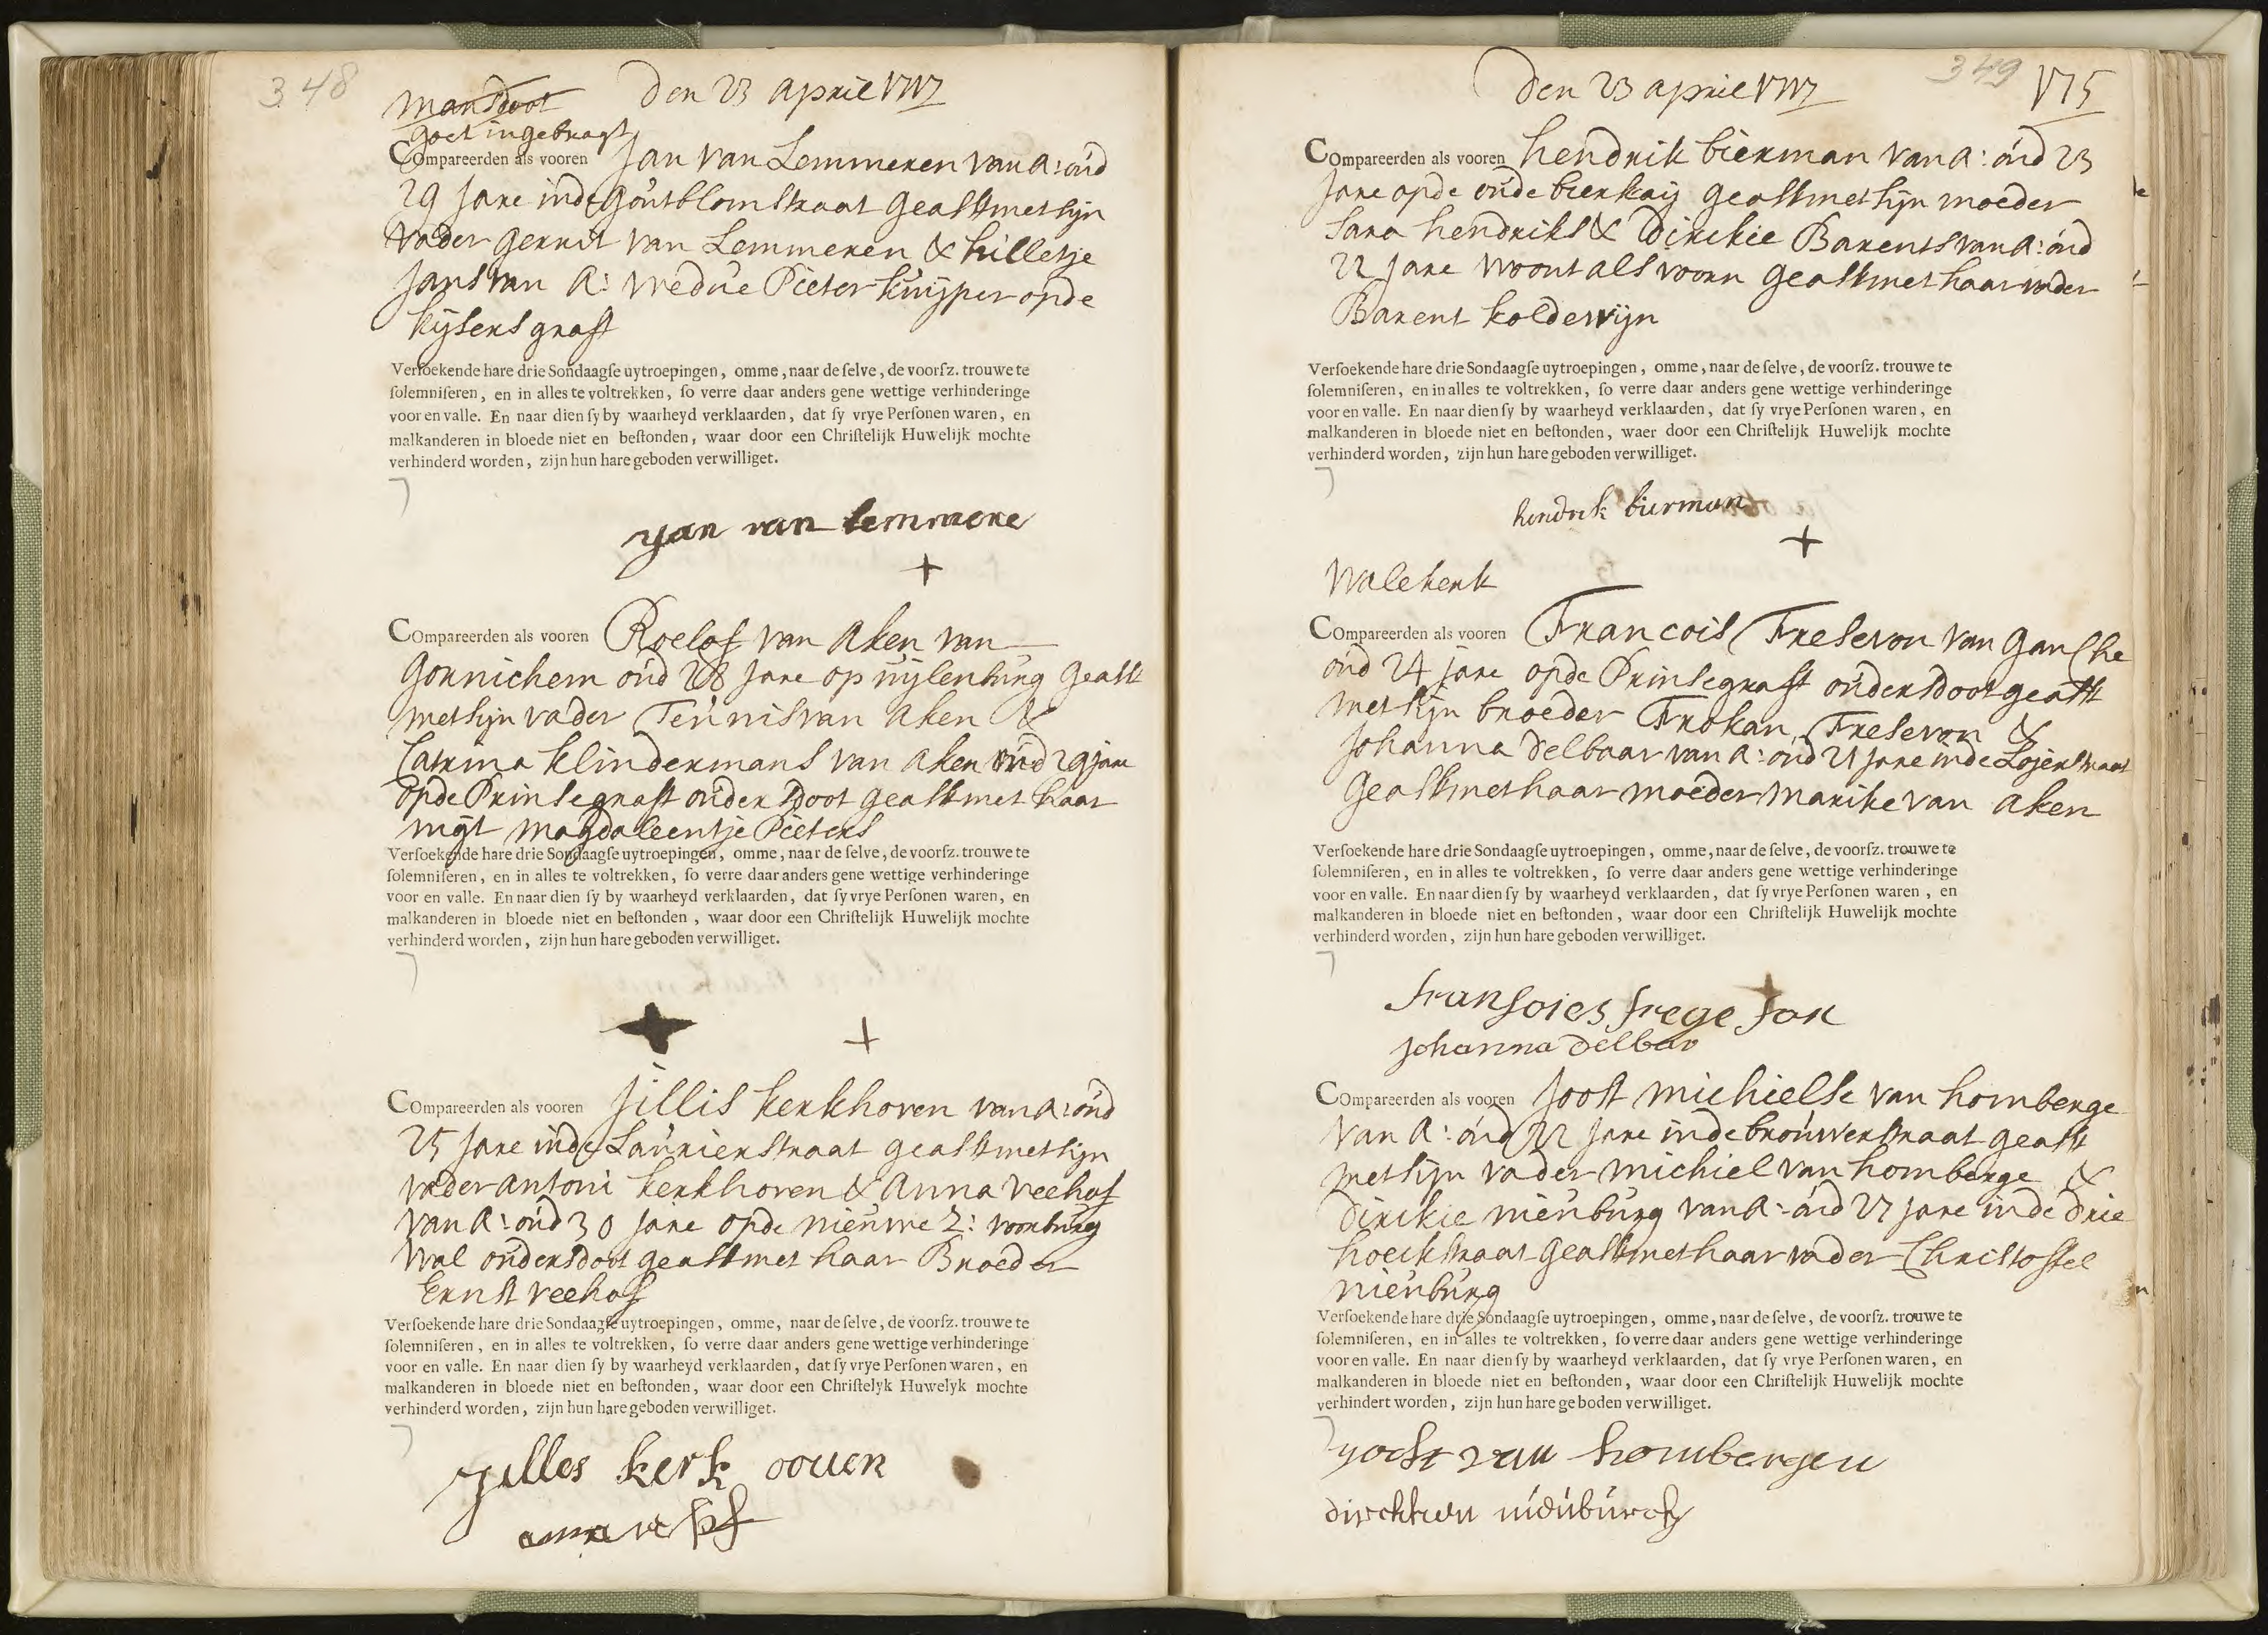 348
mansdoot den 23 april 1717
goet ingebragt
Compareerden als vooren Jan van Lemmeren van A: oud
29 Jare inde Goutblomstraat geasst met sijn
vader Gerrit van Lemmeren & hilletje
Jans van A: wedue Pieter kuijper opde
kijsers graft
Versoekende hare drie Sondaagse uytroepingen, omme, naar de selve, de voorsz. trouwe te
solemniseren, en in alles te voltrekken, so verre daar anders gene wettige verhinderinge
voor en valle. En naar dien sy by waarheyd verklaarden, dat sy vrye Personen waren, en
malkanderen in bloede niet en bestonden, waar door een Christelijk Huwelijk mochte
verhinderd worden, zijn hun hare geboden verwilliget.
yan van lemmere
+
Compareerden als vooren Roelof van Aken van
Gornichem oud 28 Jare op uijlenburg geasst
met sijn vader Teunis van Aken &
Catrina klindermans van Aken oud 29 jare
opde Prinsegraft ouders doot geasst met haar
nigt Magdaleentje Pieters
Versoekende hare drie Sondaagse uytroepingen, omme, naar de selve, de voorsz. trouwe te
solemniseren, en in alles te voltrekken, so verre daar anders gene wettige verhinderinge
voor en valle. En naar dien sy by waarheyd verklaarden, dat sy vrye Personen waren, en
malkanderen in bloede niet en bestonden, waar door een Christelijk Huwelijk mochte
verhinderd worden, zijn hun hare geboden verwilliget.
+ +
Compareerden als vooren Jillis kerkhoven van A: oud
25 Jare inde Laurierstraat geasst met sijn
vader Antoni kerkhoven & Anna Veehof
van A: oud 30 Jare opde nieuwe Z: voorburg
wal ouders doot geasst met haar Broeder
Ernst veehof
Versoekende hare drie Sondaagse uytroepingen, omme, naar de selve, de voorsz. trouwe te
solemniseren, en in alles te voltrekken, so verre daar anders gene wettige verhinderinge
voor en valle. En naar dien sy by waarheyd verklaarden, dat sy vrye Personen waren, en
malkanderen in bloede niet en bestonden, waar door een Christelyk Huwelyk mochte
verhinderd worden, zijn hun hare geboden verwilliget.
Jilles kerk oouen
anna
den 23 april 1717 349 175
Compareerden als vooren hendrik bierman van A: oud 23
Jare opde oude bierkaij geasst met sijn moeder
Sara hendriks & Dirckie Barents van A: oud
22 Jare woont als voorn geasst met haar vader
Barent koldewijn
Versoekende hare drie Sondaagse uytroepingen, omme, naar de selve, de voorsz. trouwe te
solemniseren, en in alles te voltrekken, so verre daar anders gene wettige verhinderinge
voor en valle. En naar dien sy by waarheyd verklaarden, dat sy vrye Personen waren, en
malkanderen in bloede niet en bestonden, waer door een Christelijk Huwelijk mochte
verhinderd worden, zijn hun hare geboden verwilliget.
hendrek bierman
+
Walekerk
Compareerden als vooren Francois Freseron van Gansche
oud 24 jare opde Prinsegraft ouders doot geasst
met sijn broeder Frokan Freseron &
Johanna Delbaar van A: oud 21 Jare inde Lojerstraat
geasst met haar moeder Marike van Aken
Versoekende hare drie Sondaagse uytroepingen, omme, naar de selve, de voorsz. trouwe te
solemniseren, en in alles te voltrekken, so verre daar anders gene wettige verhinderinge
voor en valle. En naar dien sy by waarheyd verklaarden, dat sy vrye Personen waren, en
malkanderen in bloede niet en bestonden, waar door een Christelijk Huwelijk mochte
verhinderd worden, zijn hun hare geboden verwilliget.
fransoies frege son
Johanna delbar
Compareerden als vooren Joost Michielse van homberge
van A: oud 22 Jare inde brouwerstraat geasst
met sijn vader Michiel van homberge &
Dirckie nieuburg van A: oud 27 Jare inde drie
hoeckstraat geasst met haar vader Christoffel
nieuburg
Versoekende hare drie Sondaagse uytroepingen, omme, naar de selve, de voorsz. trouwe te
solemniseren, en in alles te voltrekken, so verre daar anders gene wettige verhinderinge
voor en valle. En naar dien sy by waarheyd verklaarden, dat sy vrye Personen waren, en
malkanderen in bloede niet en bestonden, waar door een Christelijk Huwelijk mochte
verhindert worden, zijn hun hare geboden verwilliget.
yoost van hombergen